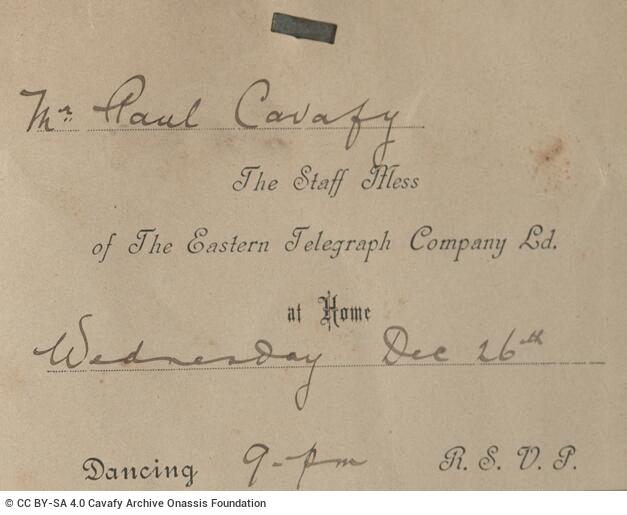 Mr. Paul Cavafy
The Staff Mess
of The Eastern Telegraph Company Ld.
at Home
Wednesday Dec 26th
Dancing 9-pm R. S. V. P.
© CC BY-SA 4.0 Cavafy Archive Onassis Foundation